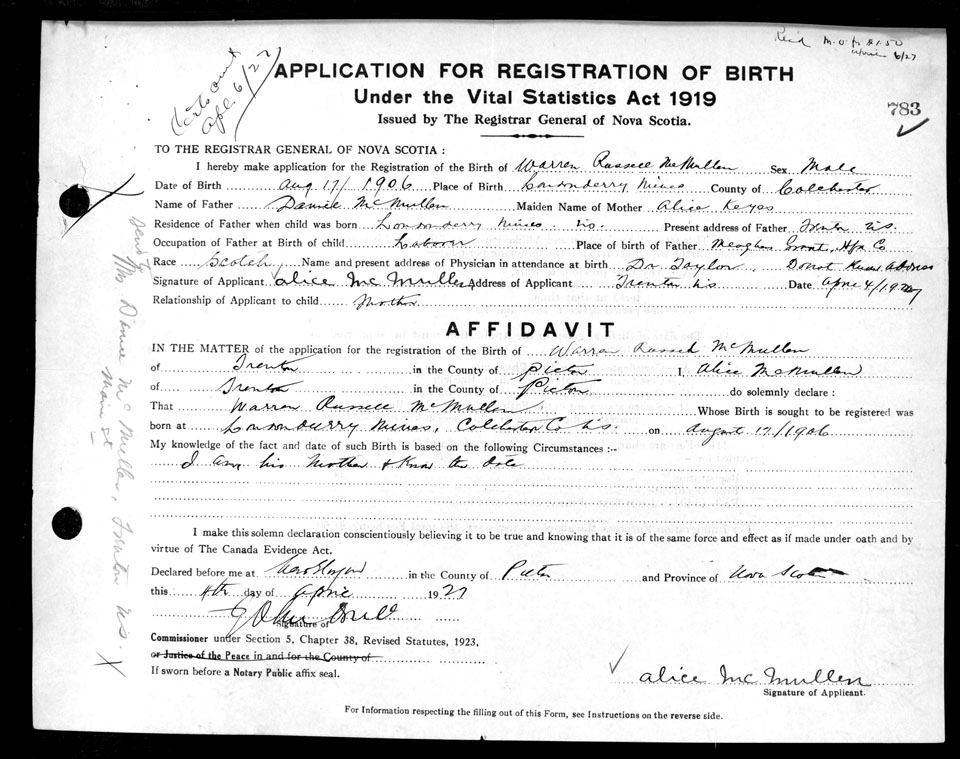 Rec'd M.O. for $1.50
April 6/27
Certs out
Apl. 6/27
APPLICATION FOR REGISTRATION OF BIRTH
Under the Vital Statistics Act 1919
Issued by The Registrar General of Nova Scotia.
783
TO THE REGISTRAR GENERAL OF NOVA SCOTIA :
I hereby make application for the Registration of the Birth of Warren Russell McMullen Sex Male
Date of Birth Aug 17/1906 Place of Birth Londonderry Mines County of Colchester
Name of Father Daniel McMullen Maiden Name of Mother Alice Keyes
Residence of Father when child was born Londonderry Mines N.S. Present address of Father Trenton N.S.
Occupation of Father at Birth of child Laborer Place of birth of Father Meaghers Grant, Hfx Co
Race Scotch Name and present address of Physician in attendance at birth Dr Taylor Donot Know address
Signature of Applicant alice Mc Mullen Address of Applicant Trenton N.S Date April 4/1927
Relationship of Applicant to child Mother
AFFIDAVIT
IN THE MATTER of the application for the registration of the Birth of Warren Russell McMullen
of Trenton in the County of Pictou I, Alice McMullen
of Trenton in the County of Pictou do solemnly declare :
That Warren Russell McMullen Whose Birth is sought to be registered was
born at Londonderry Mines, Colchester Co N.S. on August 17/1906
My knowledge of the fact and date of such Birth is based on the following Circumstances :-
I am his Mother & Know the date
I make this solemn declaration conscientiously believing it to be true and knowing that it is of the same force and effect as if made under oath and by
virtue of The Canada Evidence Act.
Declared before me at New Glasgow in the County of Pictou and Province of Nova Scotia
this 4th day of April 1927
Signature of
Commissioner under Section 5, Chapter 38, Revised Statutes, 1923,
or Justice of the Peace in and for the County of
If sworn before a Notary Public affix seal.
alice Mc Mullen
Signature of Applicant.
For Information respecting the filling out of this Form, see Instructions on the reverse side.
Send to
Mrs Daniel McMullen, Trenton N.S.
Main St